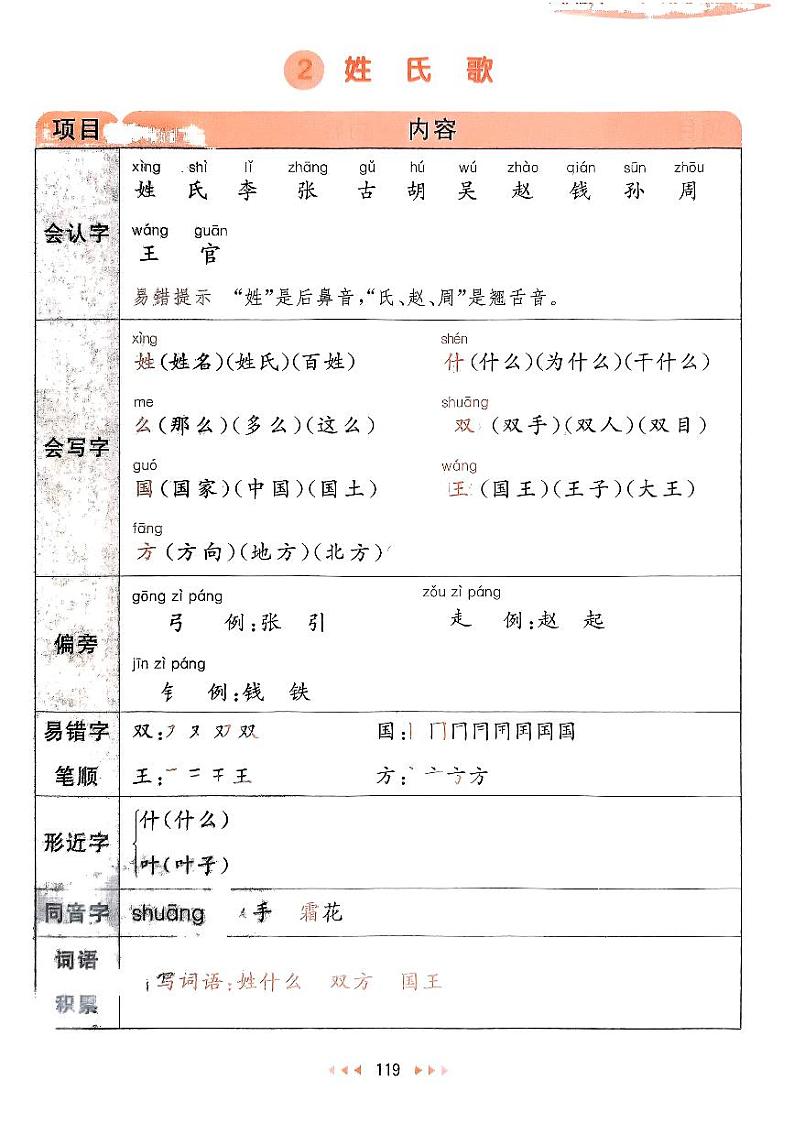 2 姓 氏 歌
项目 内容
xìng shì lǐ zhāng gǔ hú wú zhào qián sūn zhōu
姓 氏 李 张 古 胡 吴 赵 钱 孙 周
wáng guān
会认字
王 官
易错提示 “姓”是后鼻音,“氏、赵、周”是翘舌音。
xìng shén
姓(姓名)(姓氏)(百姓) 什(什么)(为什么)(干什么)
me shuāng
么(那么)(多么)(这么) 双(双手)(双人)(双目)
会写字
guó wáng
国(国家)(中国)(国土) 王(国王)(王子)(大王)
fāng
方(方向)(地方)(北方)
gōng zì páng zǒu zì páng
弓 例:张 引 走 例:赵 起
偏旁
jīn zì páng
钅 例:钱 铁
易错字 双:㇇ 又 双 双 国:丨 冂 冂 冃 冃 囯 国 国
笔顺 王:一 二 干 王 方:丶 亠 方 方
什(什么)
形近字
叶(叶子)
同音字 shuāng 手 霜花
词语
写词语:姓什么 双方 国王
积累
119